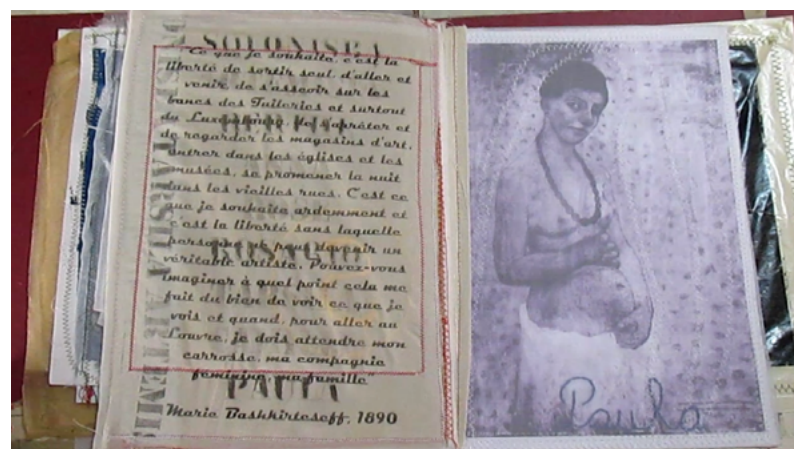 SOFONISBA
"Ce que je souhaite, c'est la
liberté de sortir seul, d'aller et
venir, de s'asseoir sur les
bancs des Tuileries et surtout
du Luxembourg, de s'arrêter et
de regarder les magasins d'art,
entrer dans les églises et les
musées, se promener la nuit
dans les vieilles rues. C'est ce
que je souhaite ardemment et
c'est la liberté sans laquelle
personne ne peut devenir un
véritable artiste. Pouvez-vous
imaginer à quel point cela me
fait du bien de voir ce que je
vois et quand, pour aller au
Louvre, je dois attendre mon
carrosse, ma compagnie
féminine, ma famille"
PAULA
Marie Bashkirtseff, 1890
Paula